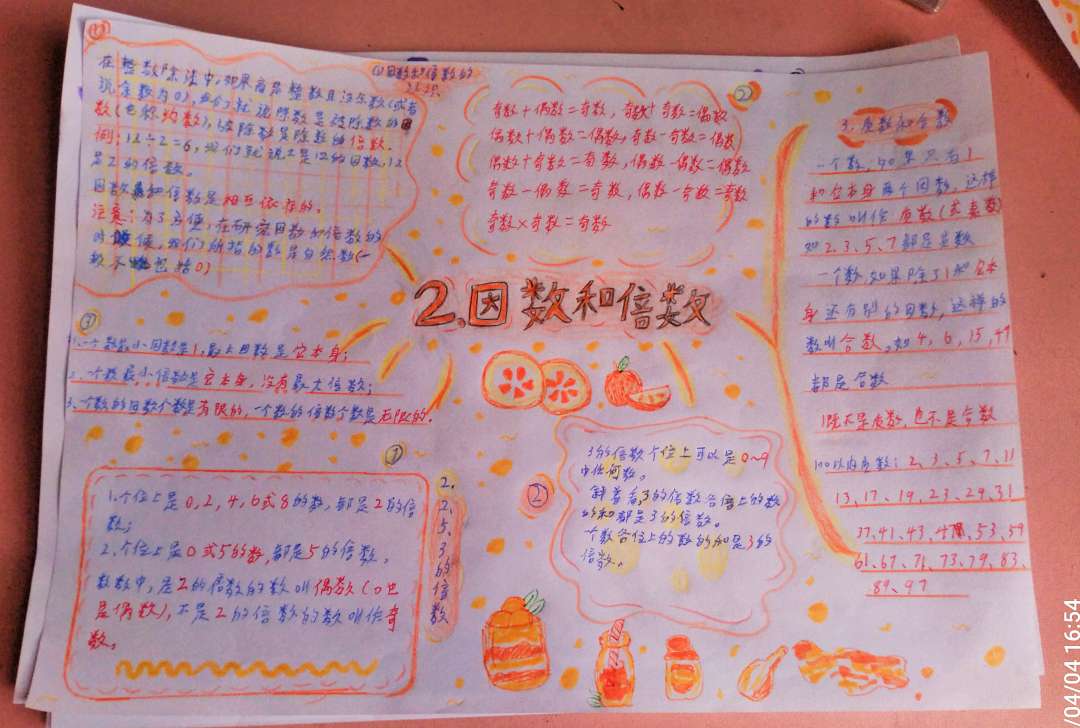 (1)
(1)因数和倍数的
认识
在整数除法中,如果商是整数且没余数(或者
说余数为0),我们就说除数是被除数的因
数(也称约数),被除数是除数的倍数.
例:12÷2=6,我们就说2是12的因数,12
是2的倍数。
因数和倍数是相互依存的。
注意:为了方便,在研究因数和倍数的
时候,我们所指的数是自然数(一
般不包括0)
③
1、一个数最小因数是1,最大因数是它本身;
2、一个数最小倍数是它本身,没有最大倍数;
3、一个数的因数个数是有限的,一个数的倍数个数是无限的.
②
奇数+偶数=奇数,奇数+奇数=偶数
偶数+偶数=偶数,奇数-奇数=偶数
偶数+奇数=奇数,偶数-偶数=偶数
奇数-偶数=奇数,偶数-奇数=奇数
奇数×奇数=奇数
2.因数和倍数
①
1、个位上是0,2,4,6或8的数,都是2的倍
数;
2、个位上是0或5的数,都是5的倍数。
数中,是2的倍数的数叫偶数(0也
是偶数),不是2的倍数的数叫作奇
数。
2.2、5、3的倍数
②
3的倍数个位上可以是0~9
中任何数。
3的倍数各位上的数
的和都是3的倍数。
一个数各位上的数的和是3的
倍数、
3、质数和合数
一个数,如果只有1
和它本身两个因数,这样
的数叫作质数(或素数)
如2、3、5、7都是质数
一个数,如果除了1和它本
身还有别的因数,这样的
数叫合数。如4,6,15,49
都是合数
1既不是质数,也不是合数
100以内质数:2、3、5、7、11
13、17、19、23、29、31
37、41、43、47、53、59
61、67、71、73、79、83、
89、97
/04/04 16:54